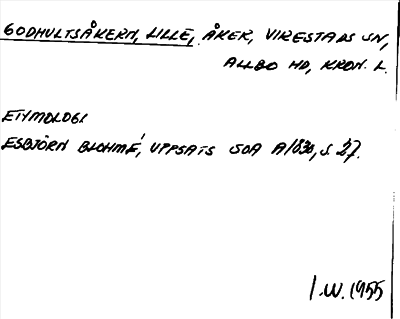 GODHULTSÅKERN, LILLE, ÅKER, VIRESTADS SN,
ALLBO HD, KRON. L.
ETYMOLOGI
ESBJÖRN BLOHMÉ, UPPSATS SOA A1830, S 27.
I.W. 1955